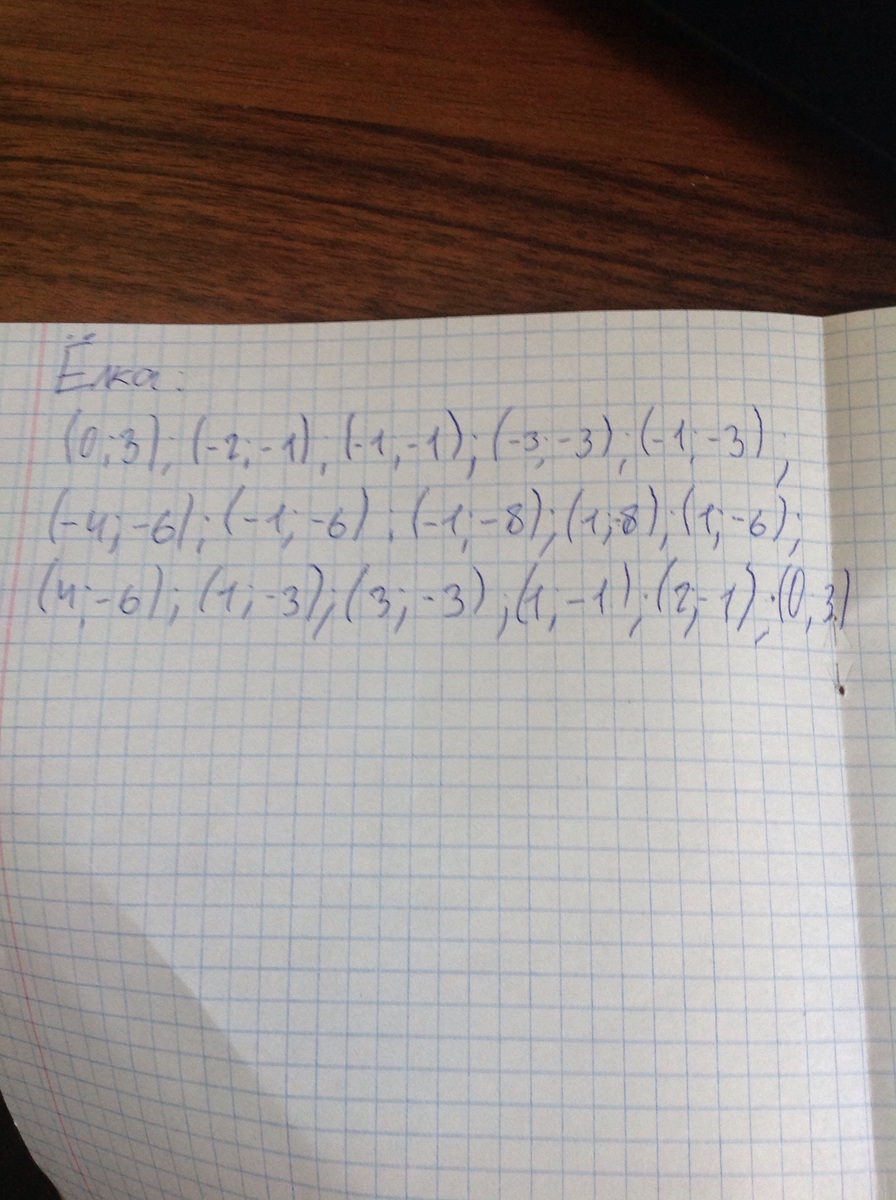 Ёлка:
(0;3); (-2;-1); (-1;-1); (-3;-3); (-1;-3);
(-4;-6); (-1;-6); (-1;-8); (1;-8); (1;-6);
(4;-6); (1;-3); (3;-3); (1;-1); (2;-1); (0;3)